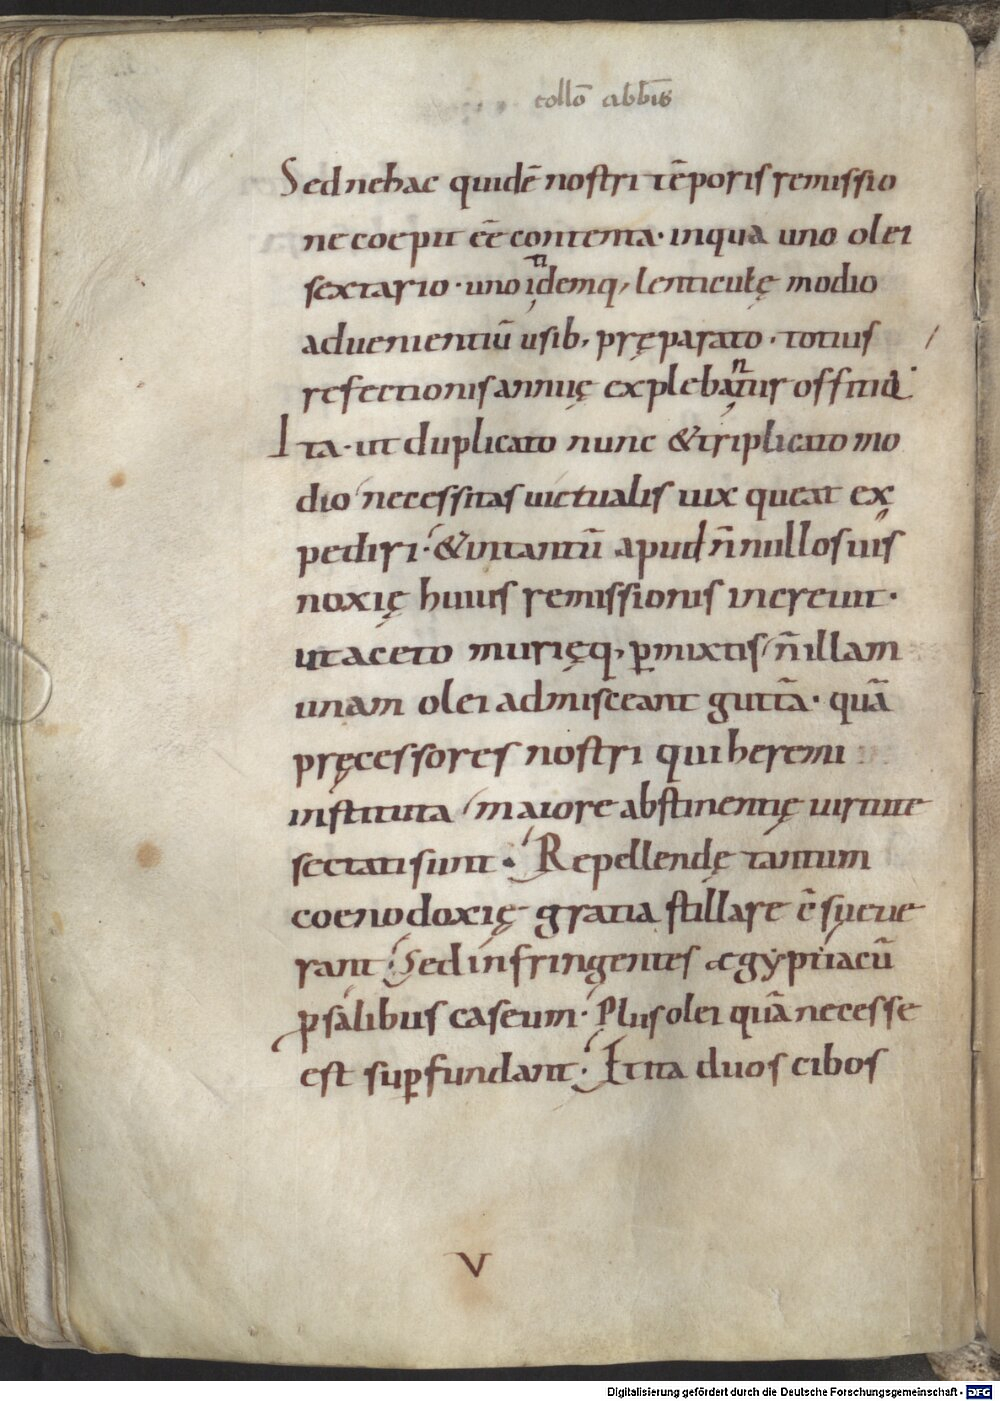 collō abbīs
Sed ne hac quidē nostri tēporis remissio
ne coepit eē contenta· in qua uno olei
sextario· uno itidemq; lenticulę modio
aduenientiū usib; pręparato· totius
refectionis annuę explebantur offitia·
Ita· ut duplicato nunc & triplicato mo
dio necessitas uictualis uix queat ex
pediri· & in tantū apud n̄nullos uis
noxię huius remissionis increuit·
ut aceto murięq; ꝑmixtis n̄ illam
unam olei admisceant guttā· quā
pręcessores nostri qui heremi
instituta maiore abstinentię uirtute
sectati sunt· Repellendę tantum
coenodoxię gratia stillare c̄sueue
rant· Sed infringentes ægyptiacū
ꝑ salibus caseum· Plus olei quā necesse
est suꝑfundant· Et ita duos cibos
V
Digitalisierung gefördert durch die Deutsche Forschungsgemeinschaft - DFG